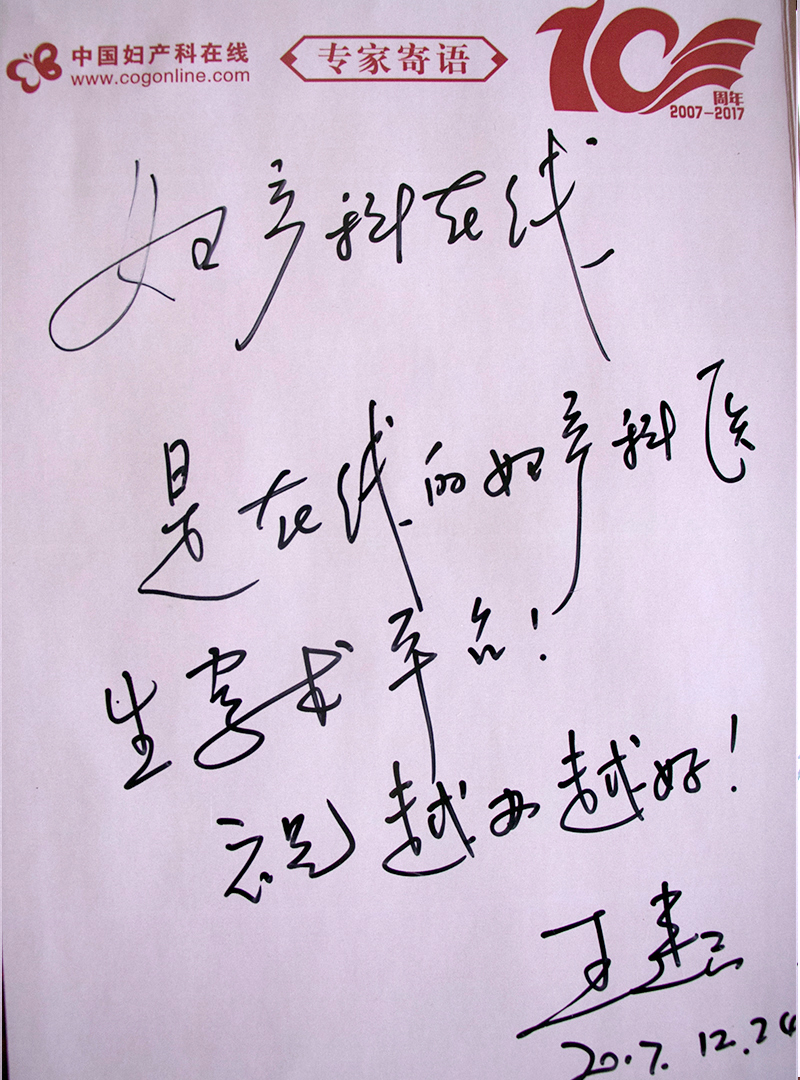 中国妇产科在线
www.cogonline.com
专家寄语
10
周年
2007-2017
妇产科在线
是在线的妇产科医
生学术平台!
祝越办越好!
王建
2017.12.24